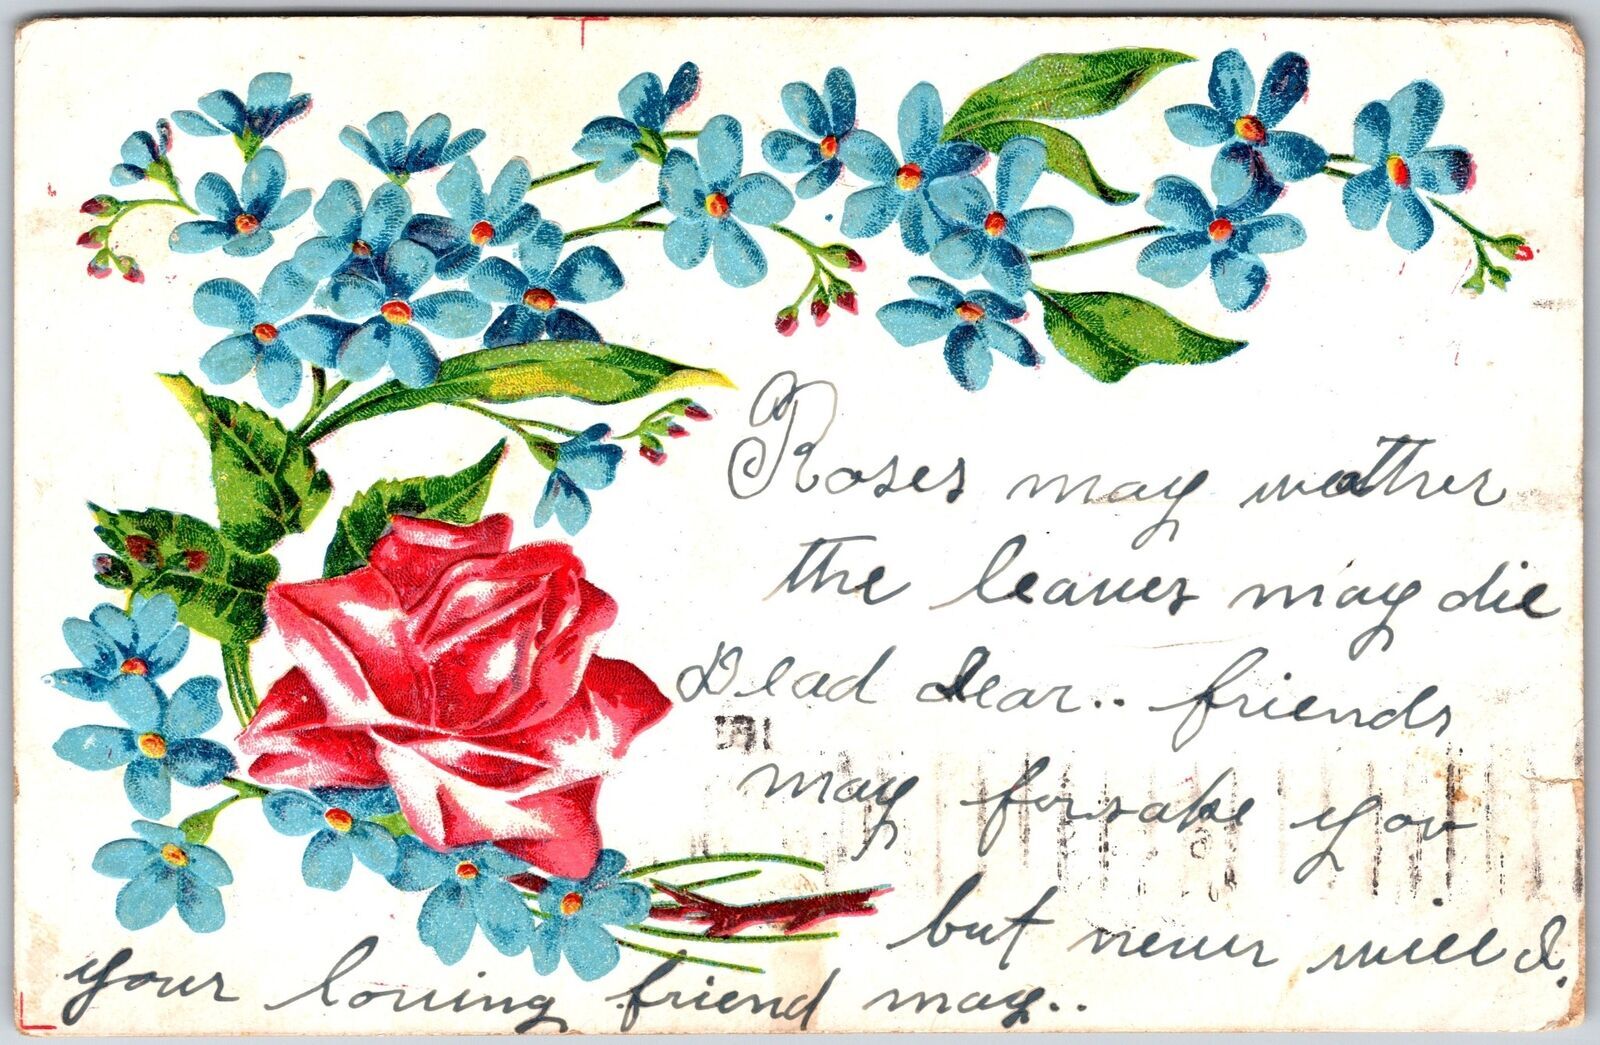 Roses may wather
the leaves may die
Dead dear.. friends
may forsake you
but never will I.
your loving friend may..